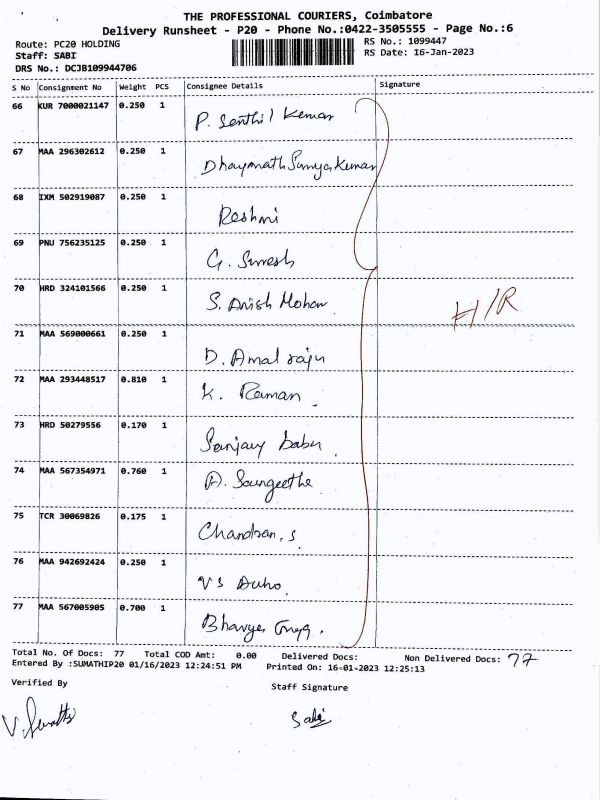 THE PROFESSIONAL COURIERS, Coimbatore
Delivery Runsheet - P20 - Phone No.:0422-3505555 - Page No.:6
Route: PC20 HOLDING
RS No.: 1099447
Staff: SABI
RS Date: 16-Jan-2023
DRS No.: DCJB109944706
S No Consignment No Weight PCS Consignee Details Signature
66 KUR 7000021147 0.250 1 P. Senthil Kumar
67 MAA 296302612 0.250 1
68 IXM 502919087 0.250 1 Reshmi
69 PNU 756235125 0.250 1 G. Suresh
70 HRD 324101566 0.250 1 S. Anish Mohan H/R
71 MAA 569000661 0.250 1 D. Amal raju
72 MAA 293448517 0.810 1 K. Raman
73 HRD 50279556 0.170 1 Sanjay babu
74 MAA 567354971 0.760 1 A. Sangeetha
75 TCR 30069826 0.175 1 Chandran. S
76 MAA 942692424 0.250 1 VS
77 MAA 567005905 0.700 1
Total No. Of Docs: 77 Total COD Amt: 0.00 Delivered Docs: Non Delivered Docs: 77
Entered By :SUMATHIP20 01/16/2023 12:24:51 PM Printed On: 16-01-2023 12:25:13
Verified By Staff Signature
Sabi